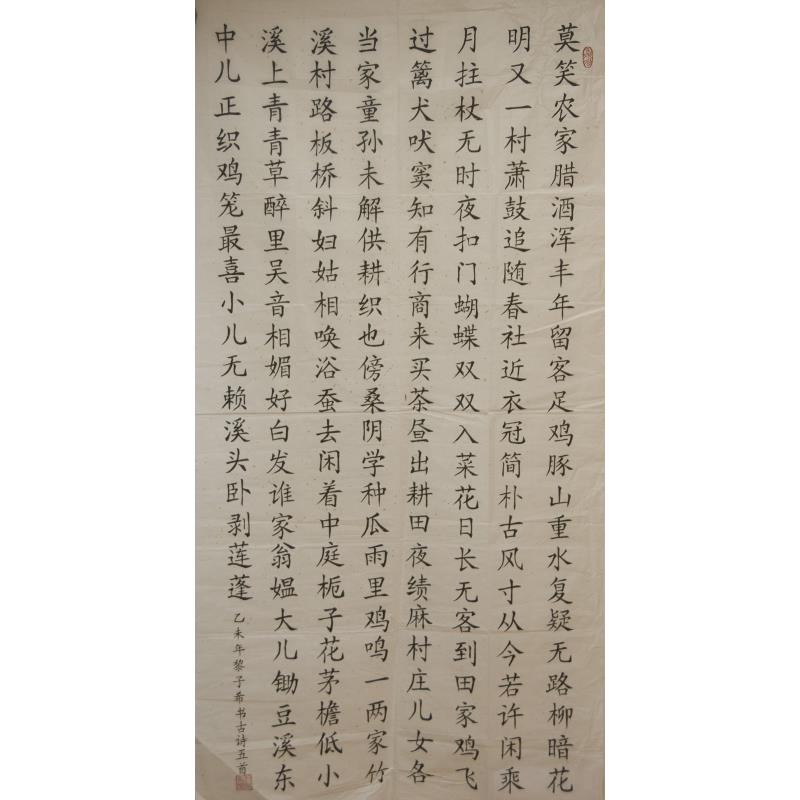 莫笑农家腊酒浑丰年留客足鸡豚山重水复疑无路柳暗花
明又一村萧鼓追随春社近衣冠简朴古风寸从今若许闲乘
月拄杖无时夜扣门蝴蝶双双入菜花日长无客到田家鸡飞
过篱犬吠窦知有行商来买茶昼出耕田夜绩麻村庄儿女各
当家童孙未解供耕织也傍桑阴学种瓜雨里鸡鸣一两家竹
溪村路板桥斜妇姑相唤浴蚕去闲着中庭栀子花茅檐低小
溪上青青草醉里吴音相媚好白发谁家翁媪大儿锄豆溪东
中儿正织鸡笼最喜小儿无赖溪头卧剥莲蓬
乙未年黎子希书古诗五首